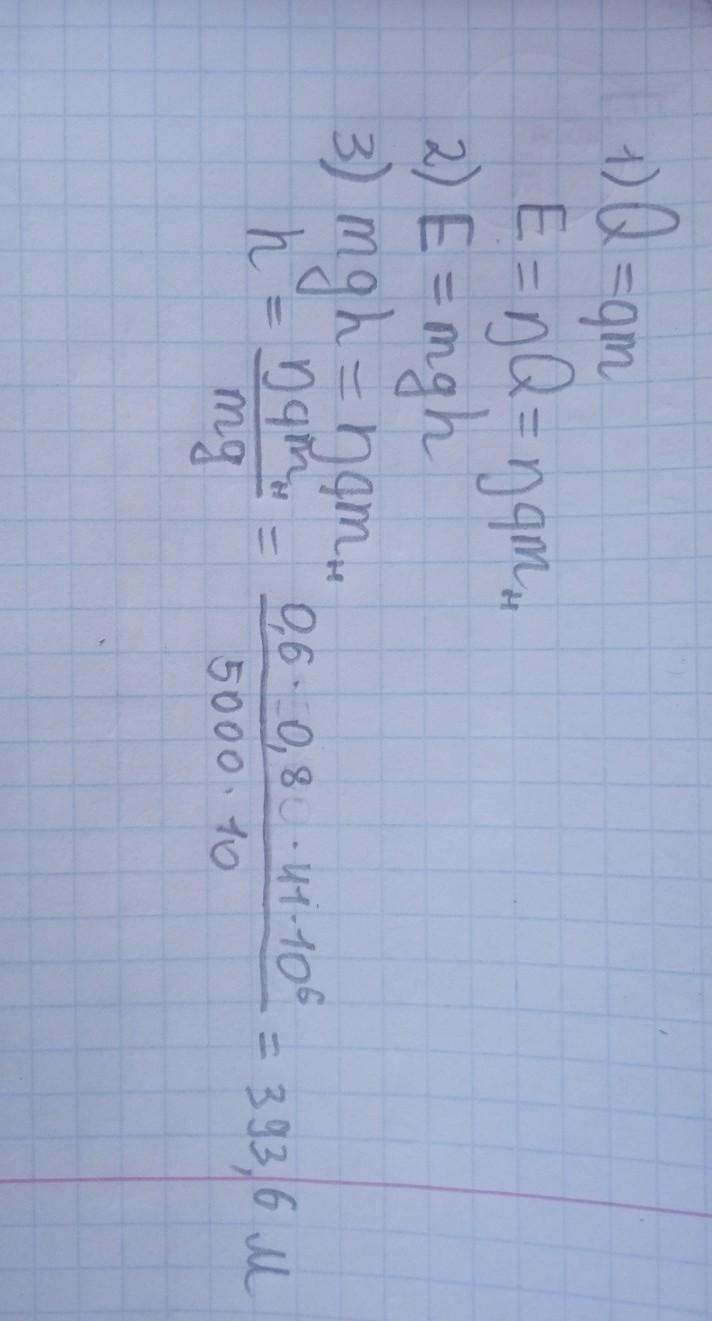 1) Q = qm
E = ηQ = ηqmн
2) E = mgh
3) mgh = ηqmн
h = ηqmн / mg = 0,6 · 0,8 · 41 · 10⁶ / 5000 · 10 = 393,6 м